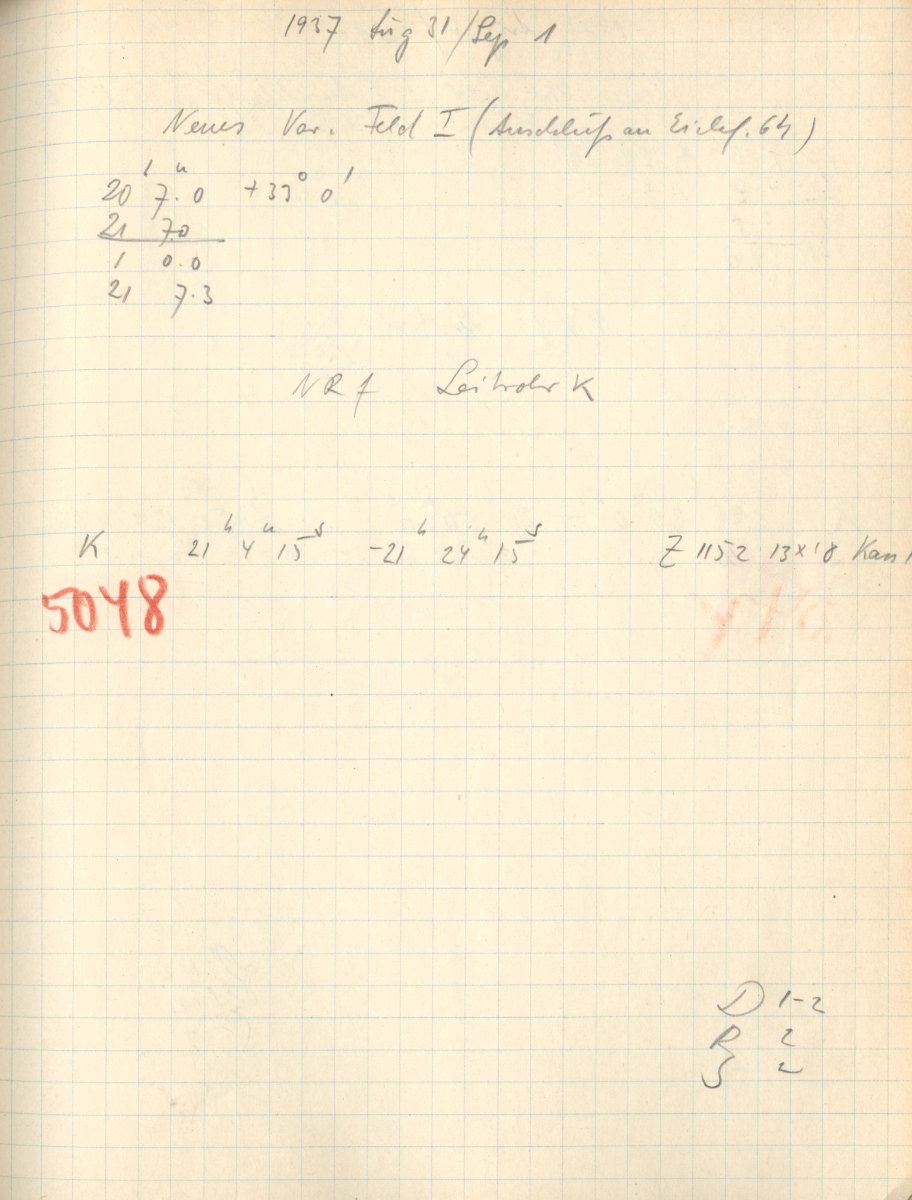 1937 Aug 31/Sep 1
Neues Var. Feld I (Anschluß an Eichf. 64)
20ʰ 7ᵐ.0 +39° 0'
21 7.0
1 0.0
21 7.3
NRf Leitrohr K
K 21ʰ 4ᵐ 15ˢ -21ʰ 24ᵐ 15ˢ Z 1152 13×18
5048
D 1-2
R 2
S 2